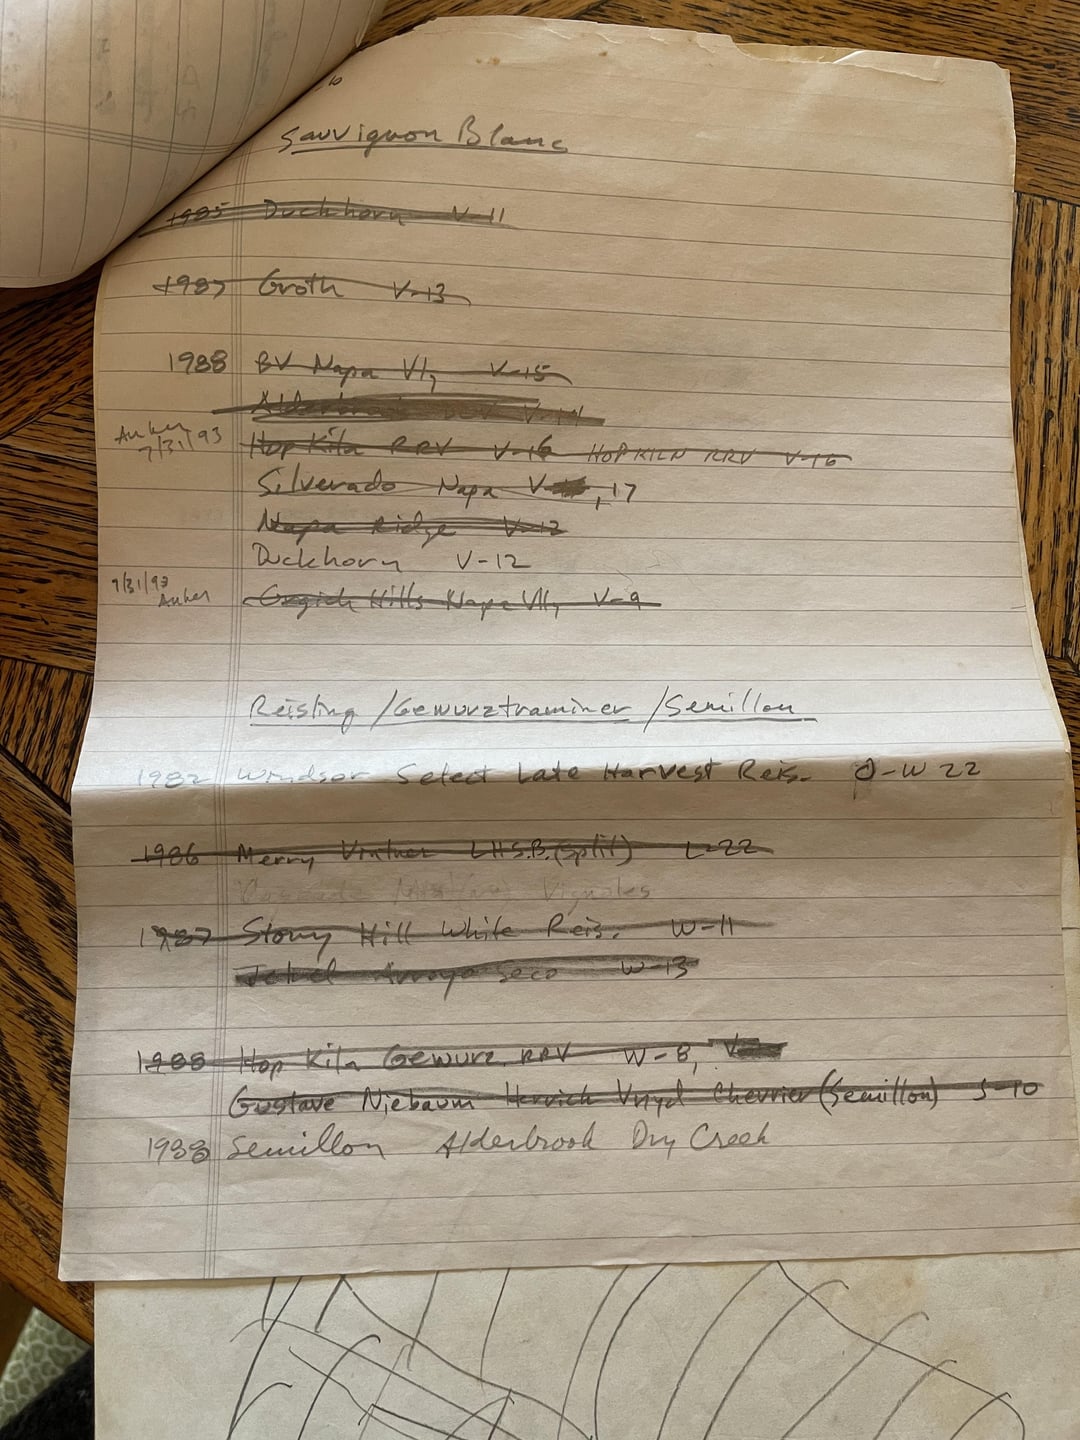 Sauvignon Blanc
1985 Duckhorn V-11
1987 Groth V-13
1988 BV Napa Vly V-15
V-14
Anken 7/31/93 Hop Kiln RRV V-16 HOP KILN RRV V-16
Silverado Napa V- , 17
Napa Ridge V-12
Duckhorn V-12
7/31/93 Anken Grgich Hills Napa Vlly V-9
Reisling/Gewurztraminer/Semillon
1982 Windsor Select Late Harvest Reis. O-W 22
1986 Merry Vintner LHS.B.(split) L-22
Vignoles
1987 Stony Hill White Reis. W-11
Jekel Arroyo Seco W-13
1988 Hop Kiln Gewurz RRV W-8,
Gustave Niebaum Vnyd Chevrier (Semillon) S-10
1988 Semillon Alderbrook Dry Creek